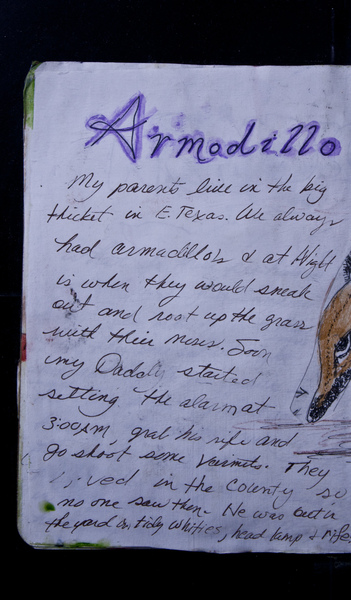 Armadillo
My parents live in the big
thicket in E. Texas. We always
had armadillo's & at Night
is when they would sneak
out and root up the grass
with their noses. Soon
my Daddy started
setting the alarm at
3:00AM, grab his rifle and
go shoot some varmits. They
lived in the County so
no one saw them. He was out in
the yard in tidy whities, head lamp & rifle